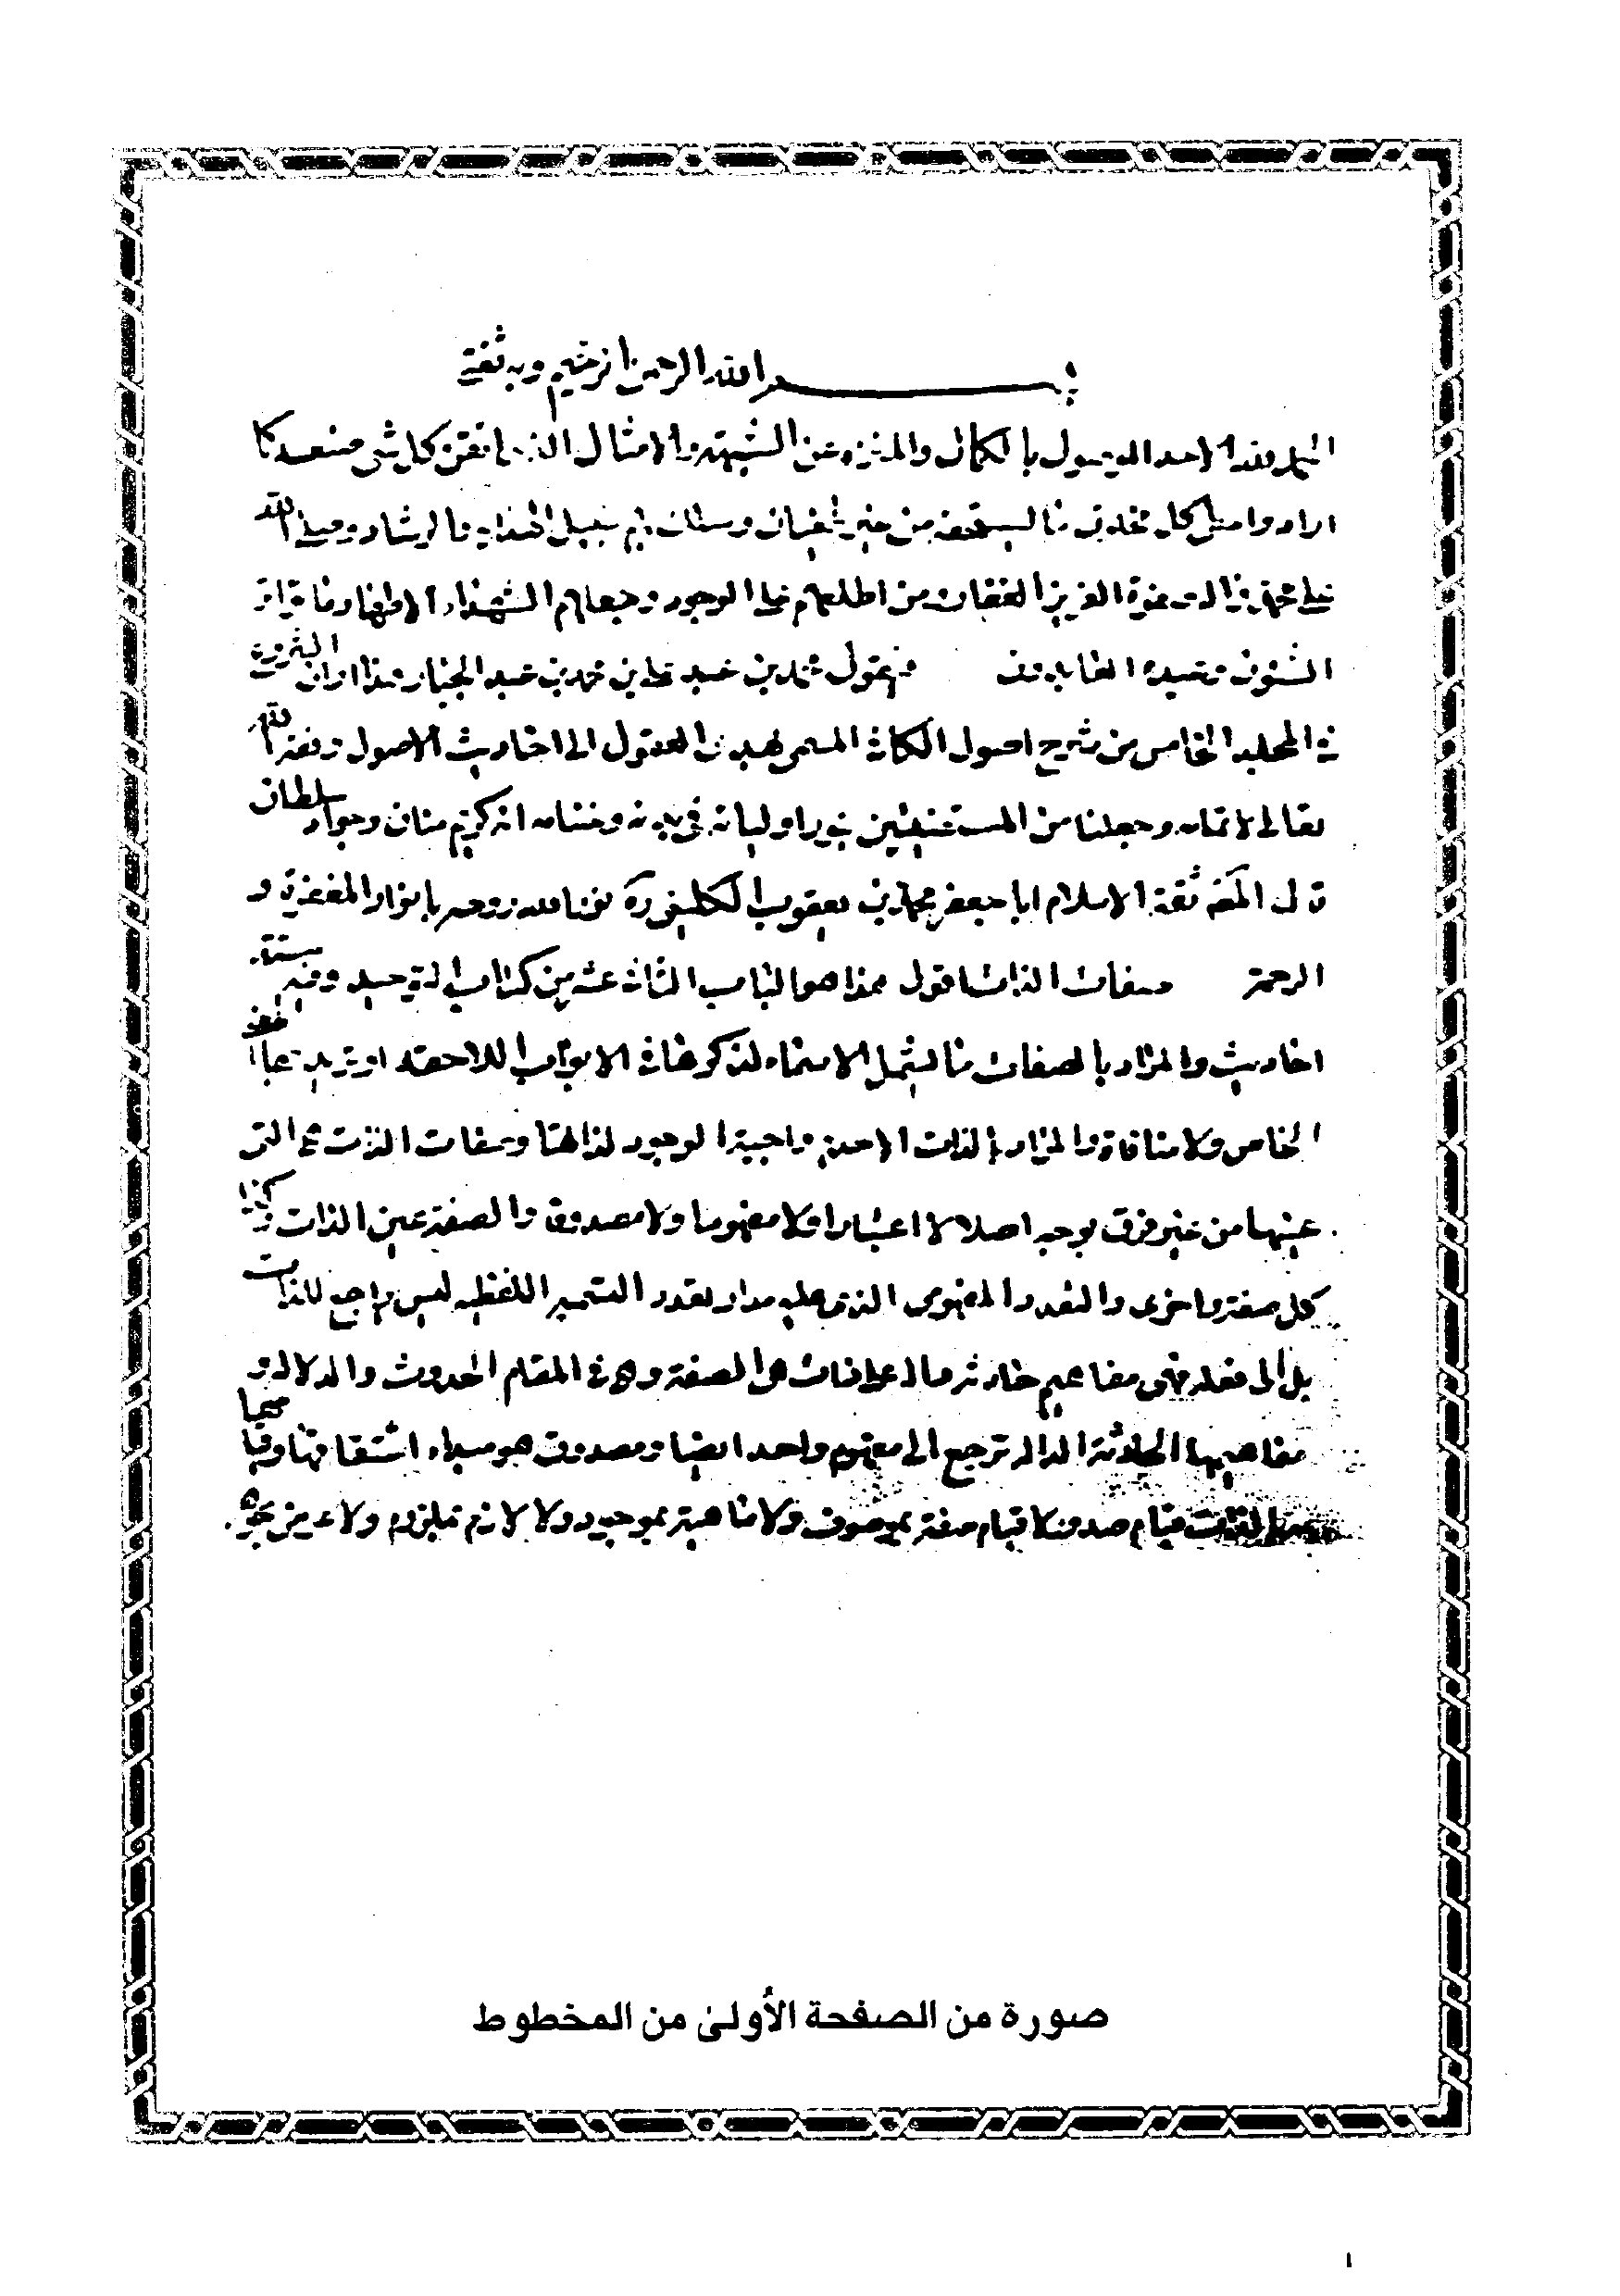 بسم الله الرحمن الرحيم وبه ثقتي
الحمد لله الاحد الموصول بالكمال والمنزه عن الشبيه والامثال الذي اتقن كل شي صنعه كما
اراد واعطى كل مخلوق ما يستحقه من غير وصلى الله
على محمد من اطلعهم على الوجود وجعلهم الشهداء
فيقول محمد بن عبد علي بن محمد بن عبد الجبار هذا اوان الشروع
في المجلد الخامس من شرح اصول الكافي المسمى بهدى العقول الى احاديث الاصول وفقه الله
تعالى لاتمامه وجعلنا من المستضيئين بنور اوليائه في بدئه وختامه انه كريم منان وجواد سلطان
قال المص ثقة الاسلام ابا جعفر محمد بن يعقوب الكليني ره نور الله روحه بانوار المغفرة و
الرحمة صفات الذات اقول هذا هو الباب الثاني عشر من كتاب التوحيد وفيه ستة
احاديث والمراد بالصفات ما يشمل الاسماء لذكرها في الابواب اللاحقة او تريد بها المعنى
الخاص ولا منافاة والمراد بالذات الاحدية واجبة الوجود لذاتها وصفات الذات هي التي
عينها من غير فرق بوجه اصلا لا اعتبارا ولا مفهوما ولا مصدوقا والصفة عين الذات وكذا
كل صفة واخرى والتعدد المفهومي الذي عليه مدار تعدد التسمية اللفظية ليس براجع للذات
بل الى فعله فهي مفاهيم حادثة دالة علامات هي الصفة وهي في المقام الحدوث والدلالة و
مفاهيمها الحادثة الدالة ترجع الى مفهوم واحد ايضا ومصدوق هو مبداء اشتقاقها وقيامها
بالذات قيام صدور لا قيام صفة بموصوف ولا ماهية بموجود ولا لازم بملزوم ولا عرض بجوهر
صورة من الصفحة الأولىٰ من المخطوط
١